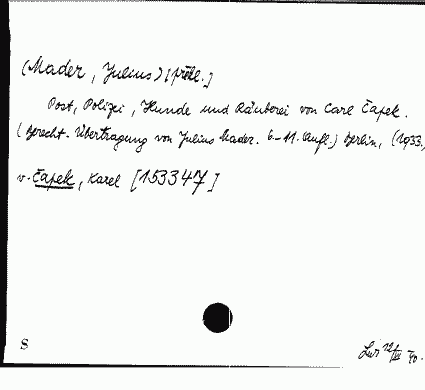 (Mader, Julius) [překl.]
Post, Polizei, Hunde und Räuberei von Carl Čapek.
(Berecht. Übertragung von Julius Mader. 6.-11. Aufl.) Berlin, (1933.
v. Čapek, Karel [153347]
S
12/III 40.